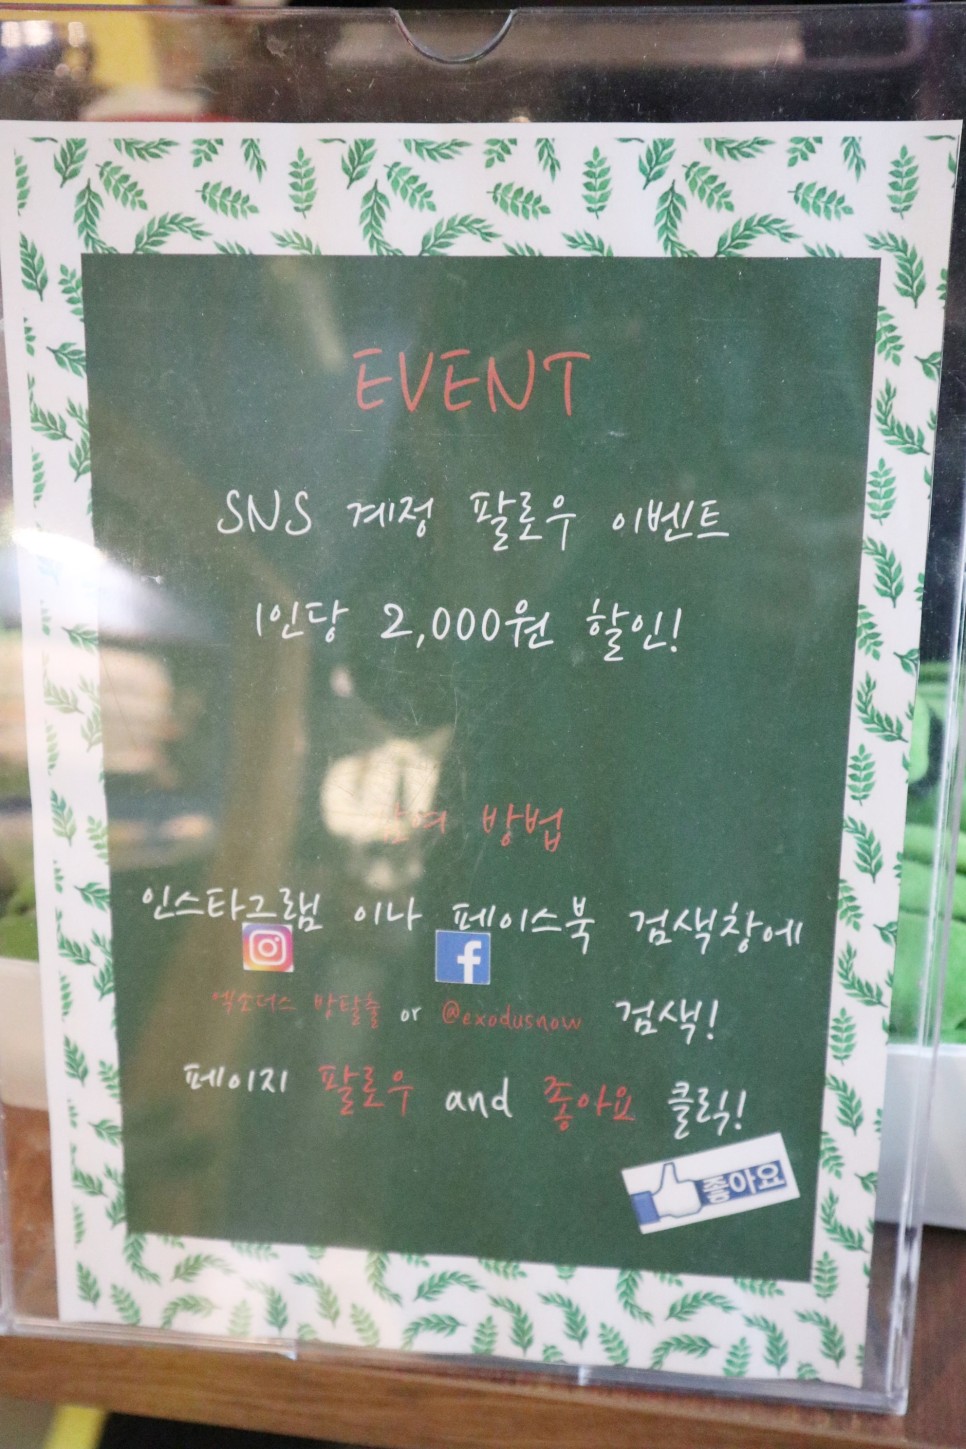 EVENT
SNS 계정 팔로우 이벤트
1인당 2,000원 할인!
참여 방법
인스타그램 이나 페이스북 검색창에
엑소더스 방탈출 or @exodusnow 검색!
페이지 팔로우 and 좋아요 클릭!
좋아요